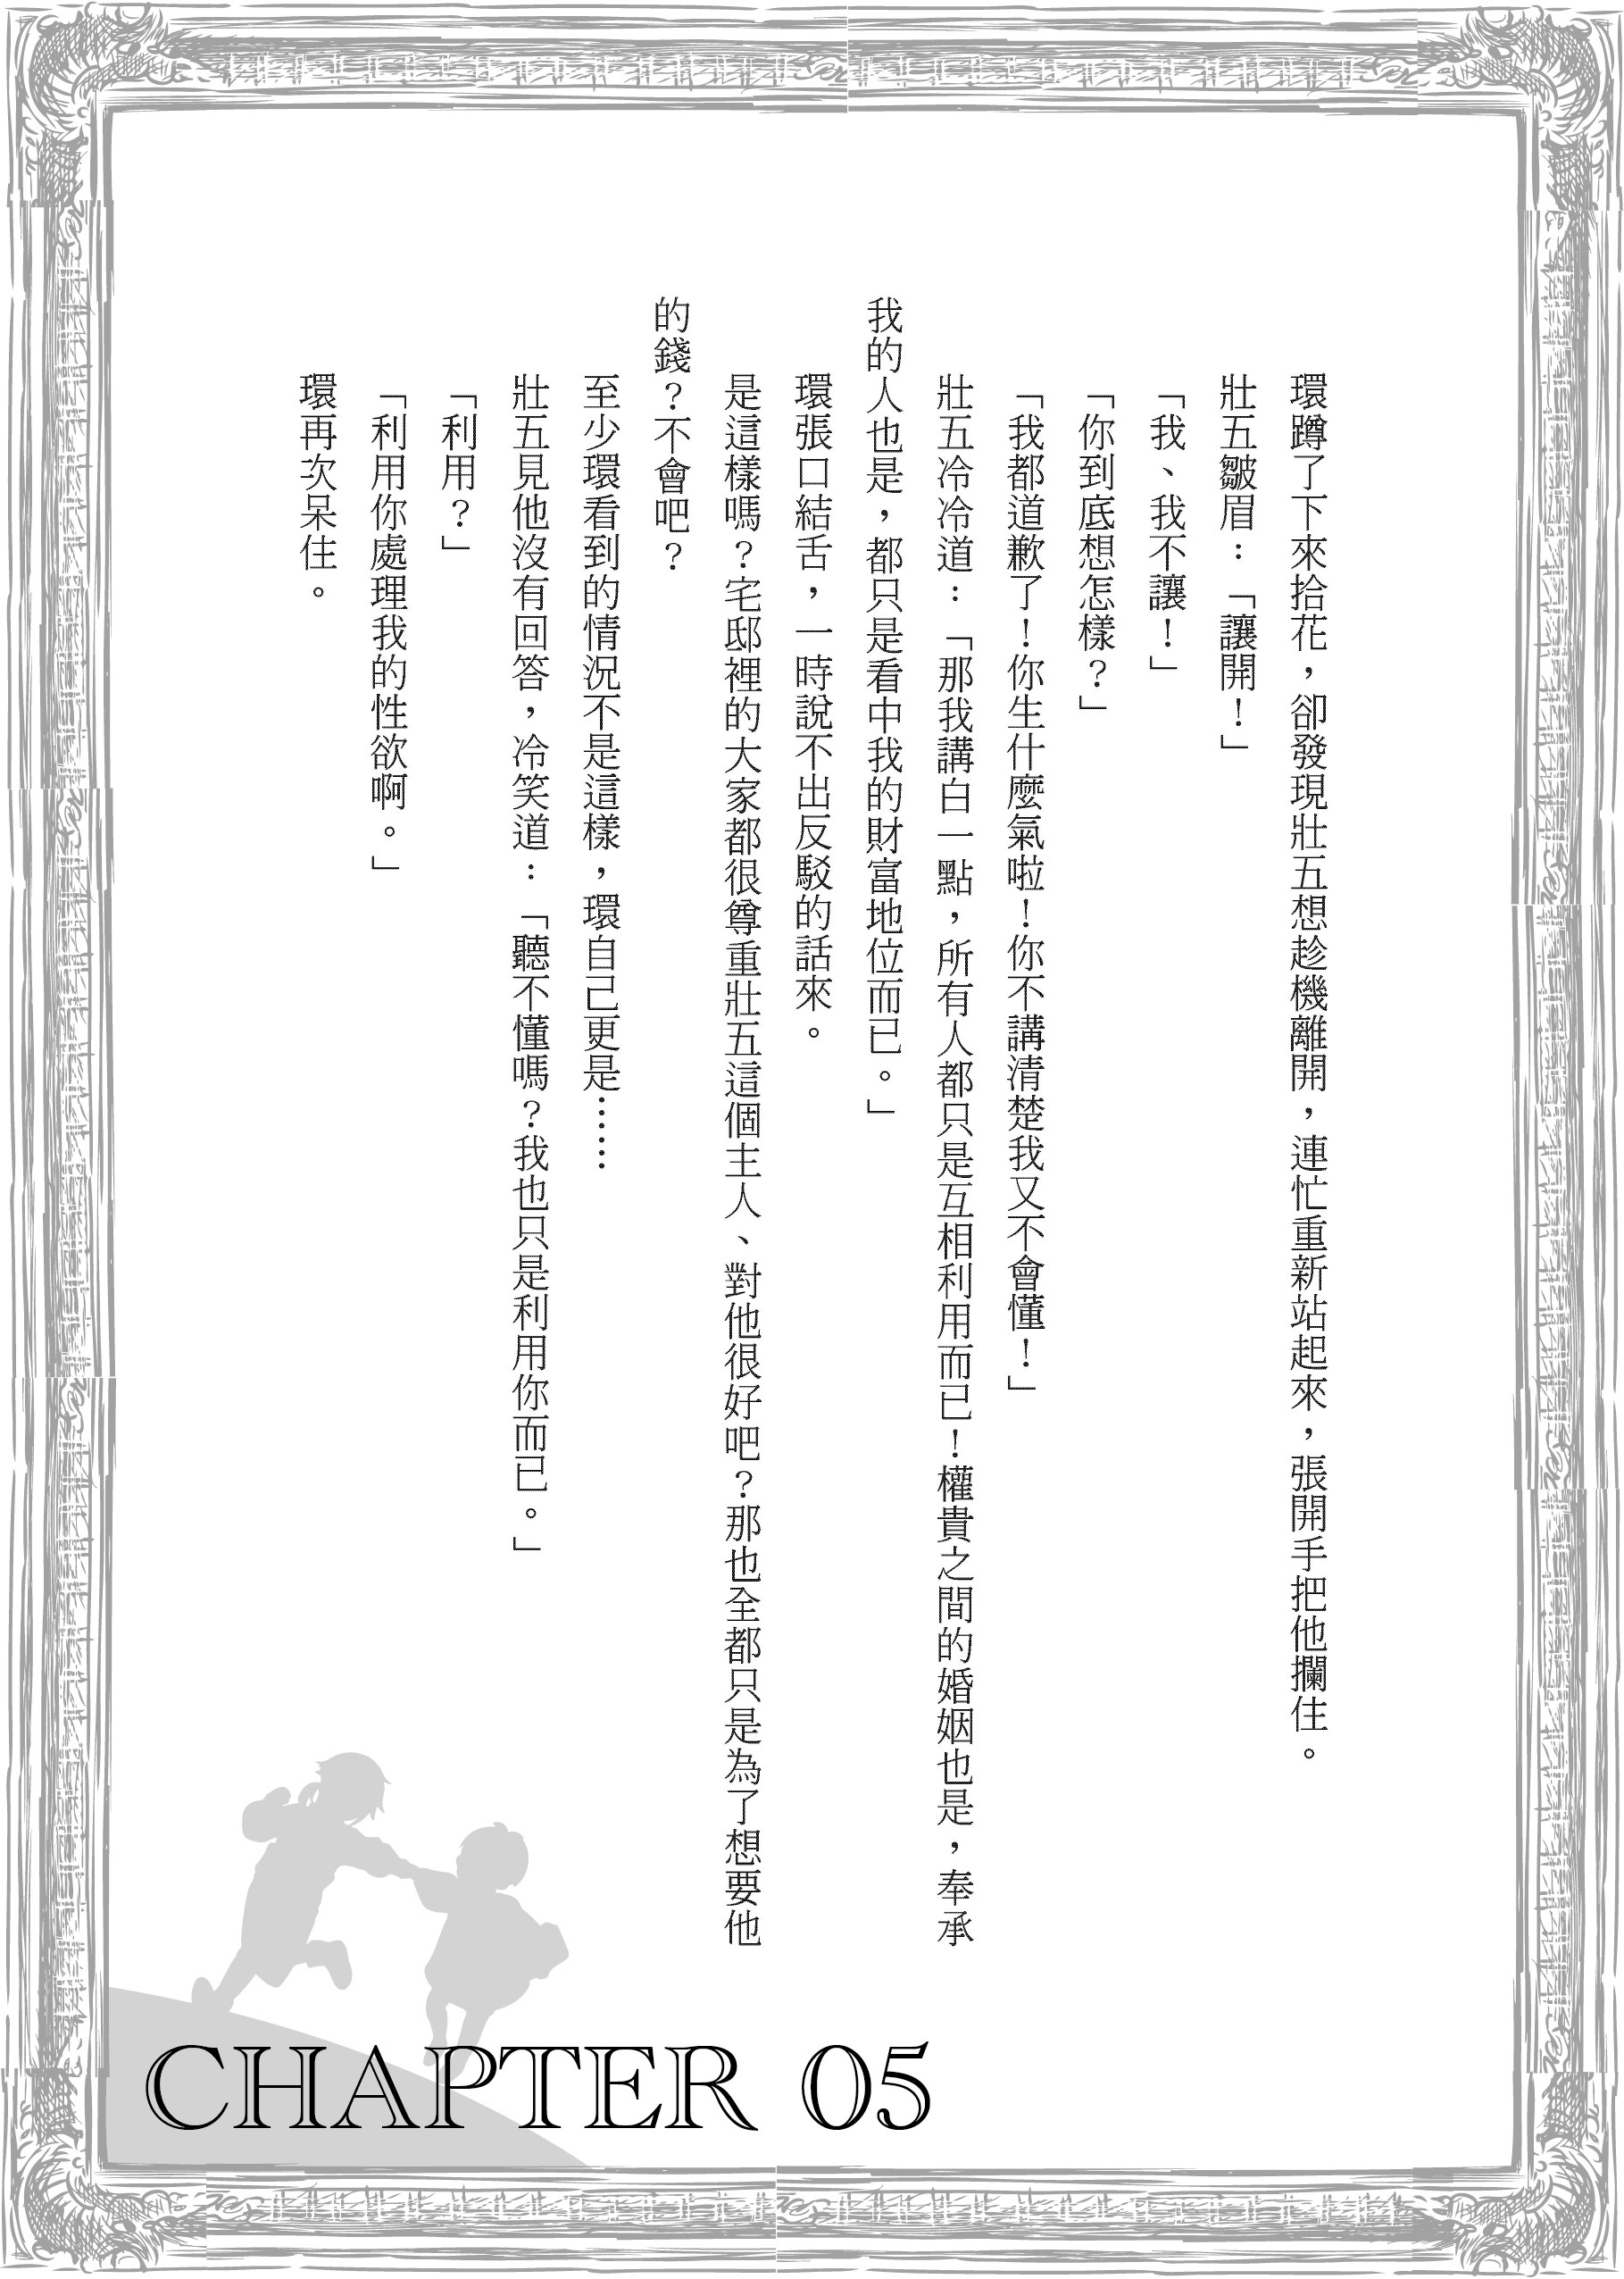 環蹲了下來拾花，卻發現壯五想趁機離開，連忙重新站起來，張開手把他攔住。
壯五皺眉：「讓開！」
「我、我不讓！」
「你到底想怎樣？」
「我都道歉了！你生什麼氣啦！你不講清楚我又不會懂！」
壯五冷冷道：「那我講白一點，所有人都只是互相利用而已！權貴之間的婚姻也是，奉承
我的人也是，都只是看中我的財富地位而已。」
環張口結舌，一時說不出反駁的話來。
是這樣嗎？宅邸裡的大家都很尊重壯五這個主人、對他很好吧？那也全都只是為了想要他
的錢？不會吧？
至少環看到的情況不是這樣，環自己更是……
壯五見他沒有回答，冷笑道：「聽不懂嗎？我也只是利用你而已。」
「利用？」
「利用你處理我的性欲啊。」
環再次呆住。
CHAPTER 05